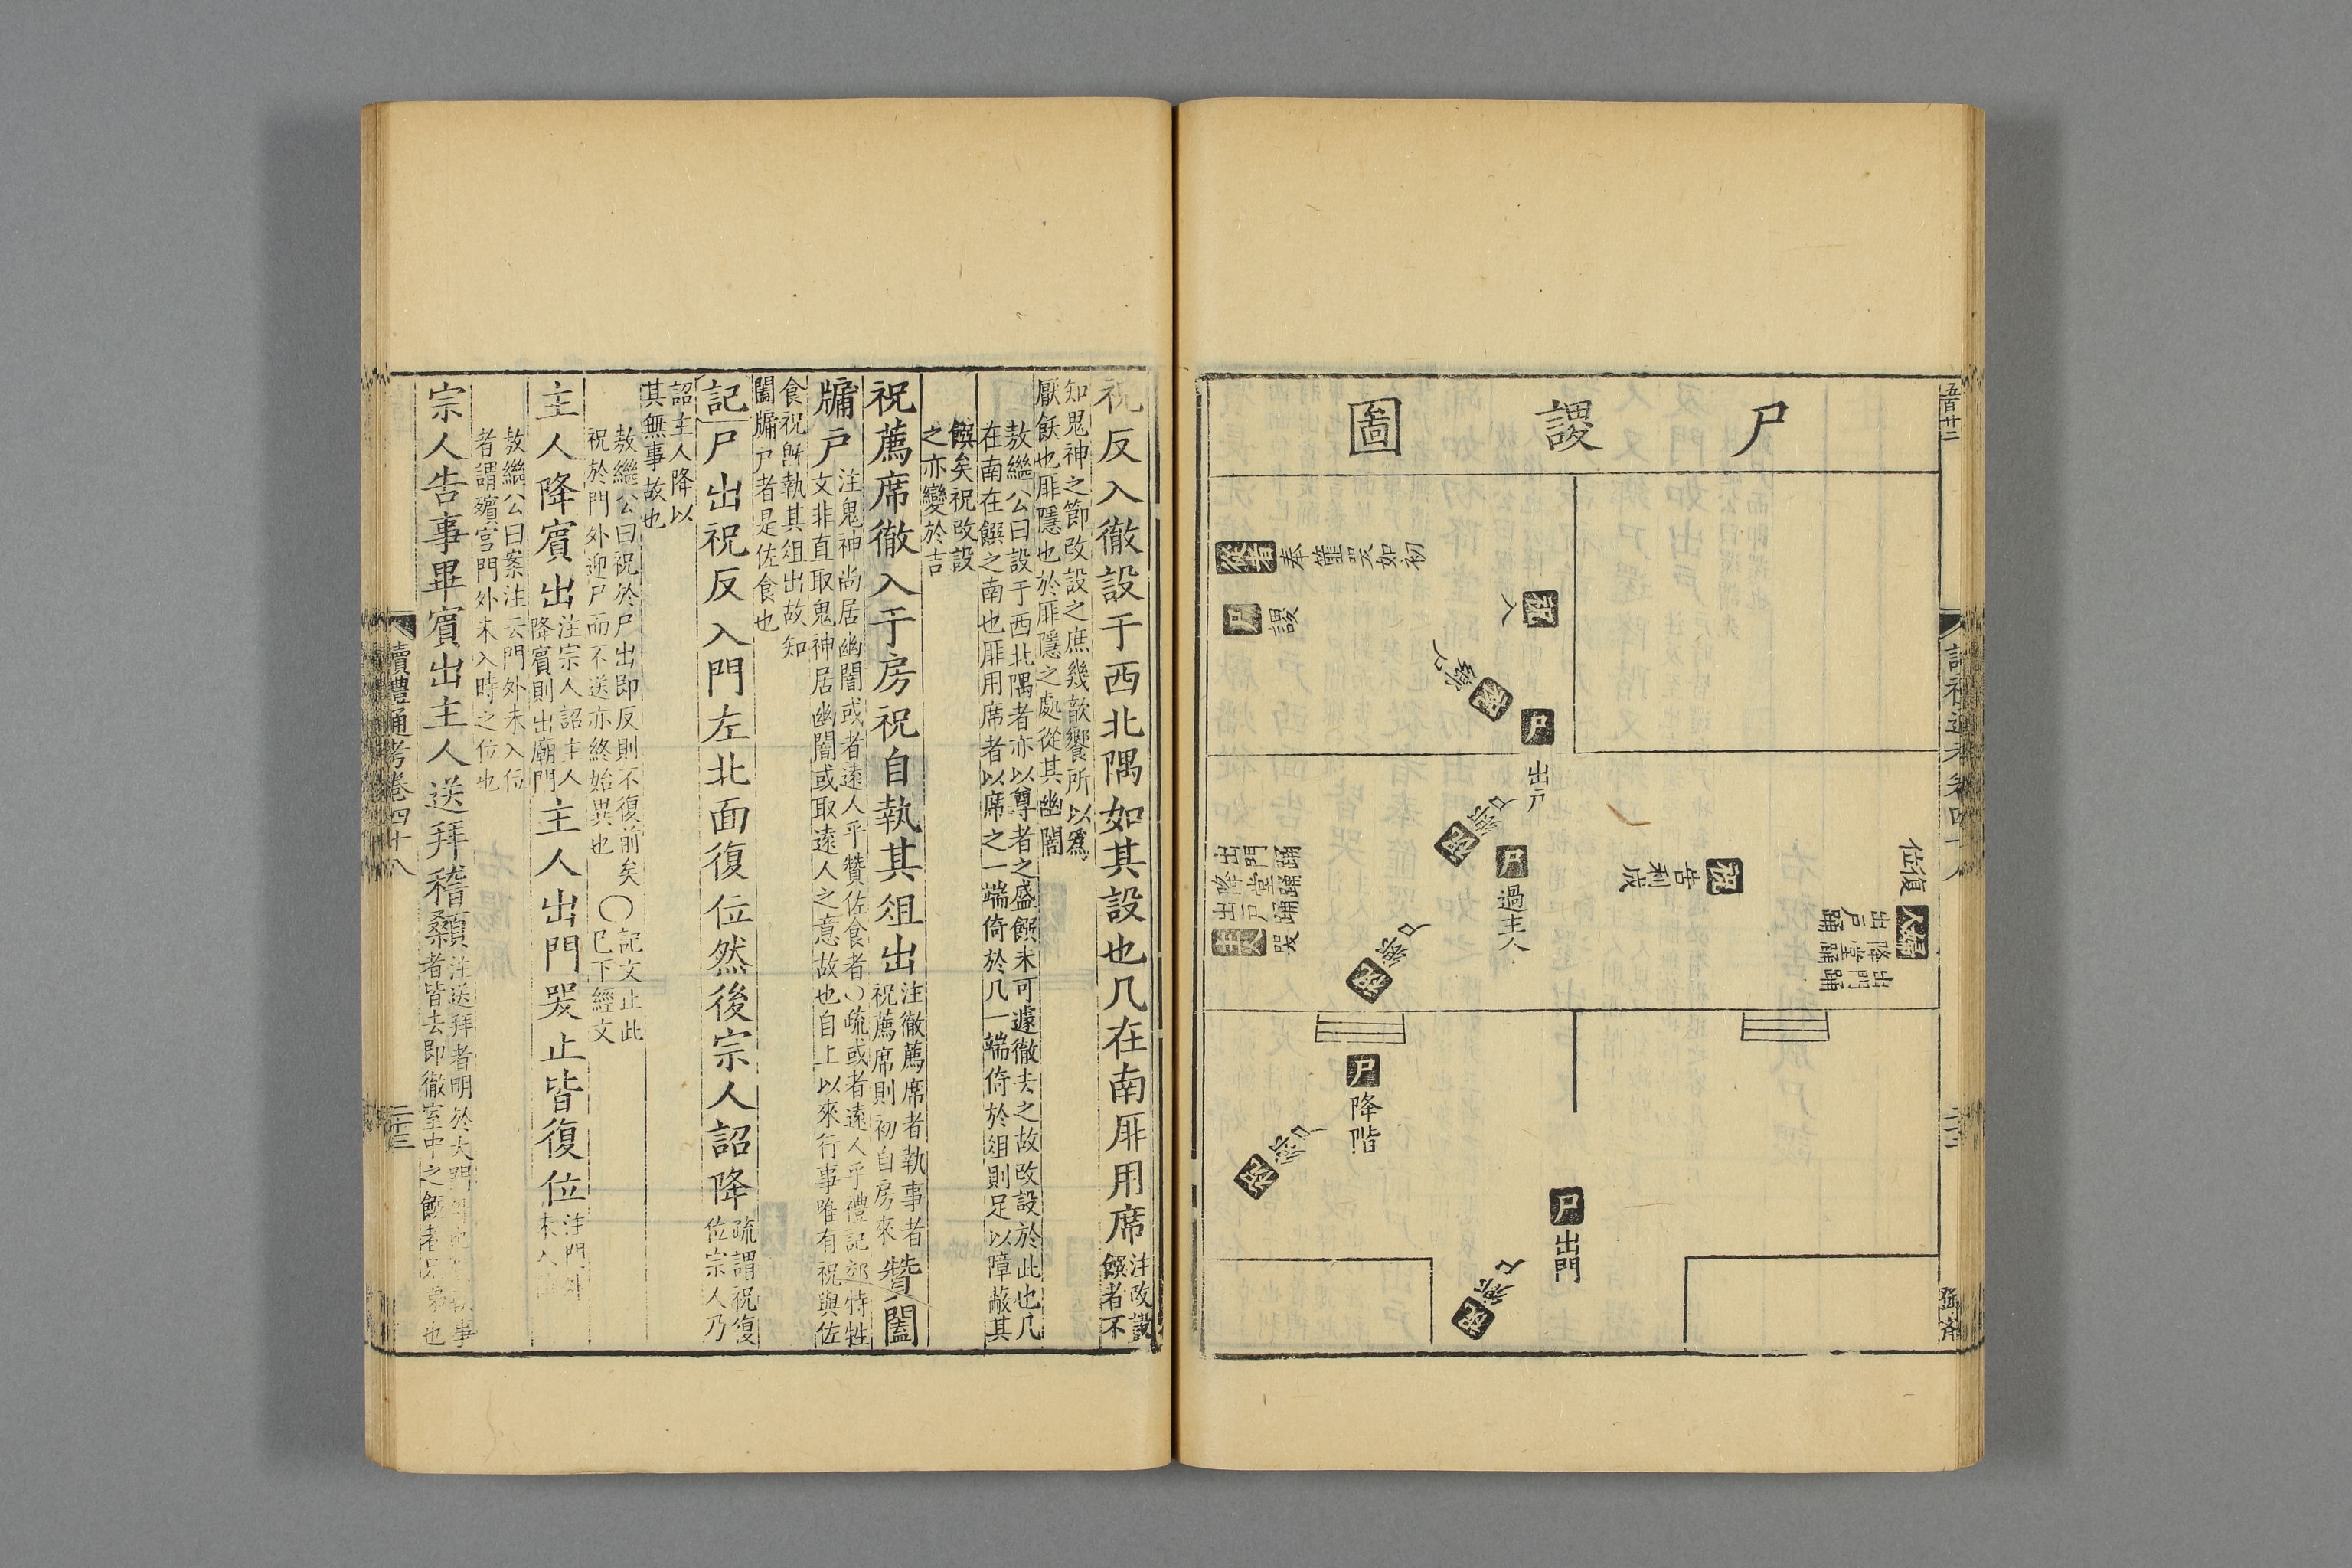 尸謖圖
五百廿二
祝
入
從者
奉篚哭如初
尸
謖
尸
出戶
祝
鄉尸
尸
過主人
祝
告利成
復位
主人
哭
出戶踊
降堂踊
出門踊
婦人
出戶踊
降堂踊
出門踊
祝
鄉尸
尸
降階
祝
鄉尸
尸
出門
祝
鄉尸
祝反入徹設于西北隅如其設也几在南厞用席注改設饌者不
知鬼神之節改設之庶幾歆饗所以爲
厭飫也厞隱也於厞隱之處從其幽闇
敖繼公曰設于西北隅者亦以尊者之盛饌未可遽徹去之故改設於此也几
在南在饌之南也厞用席者以席之一端倚於几一端倚於俎則足以障蔽其
饌矣祝改設
之亦變於吉
祝薦席徹入于房祝自執其俎出注徹薦席者執事者祝薦席則初自房來贊闔
牖戶注鬼神尚居幽闇或者遠人乎贊佐食者〇疏或者遠人乎禮記郊特牲
文非直取鬼神居幽闇或取遠人之意故也自上以來行事唯有祝與佐
食祝旣執其俎出故知
闔牖戶者是佐食也
記尸出祝反入門左北面復位然後宗人詔降疏謂祝復位宗人乃
詔主人降以
其無事故也
敖繼公曰祝於尸出即反則不復前矣〇記文止此
祝於門外迎尸而不送亦終始異也〇已下經文
主人降賓出注宗人詔主人降賓則出廟門主人出門哭止皆復位注門外未入位
敖繼公曰案注云門外未入位
者謂殯宮門外未入時之位也
宗人告事畢賓出主人送拜稽顙注送拜者明於大門外也賓執事
者皆去即徹室中之饌者兄弟也
讀禮通考卷四十八
二十三